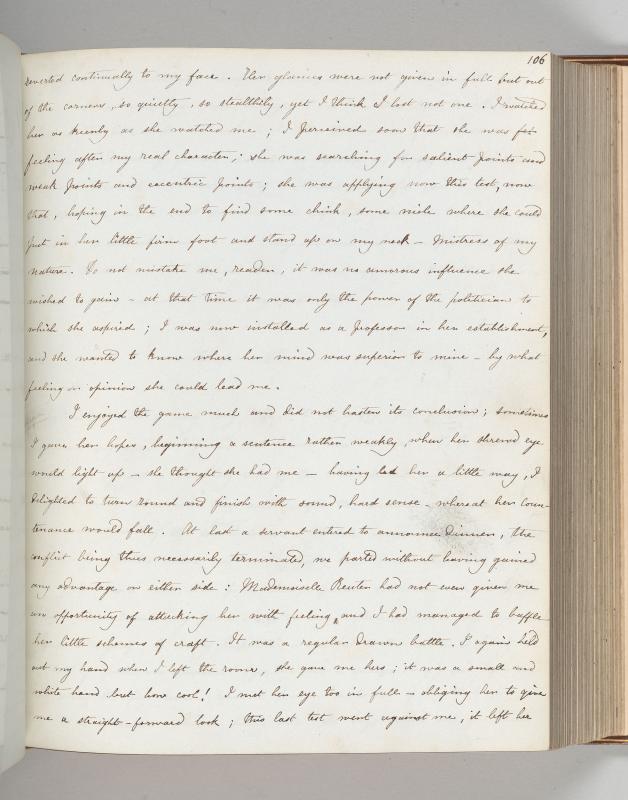 106
reverted continually to my face. Her glances were not given in full but out
of the corners, so quietly, so stealthily, yet I think I lost not one. I watched
her as keenly as she watched me; I perceived soon that she was
feeling after my real character; she was searching for salient points and
weak points and eccentric points; she was applying now this test, now
that, hoping in the end to find some chink, some niche where she could
put in her little firm foot and stand up on my neck - Mistress of my
nature. Do not mistake me, reader, it was no amorous influence she
wished to gain - at that time it was only the power of the politician to
which she aspired; I was now installed as a Professor in her establishment,
and she wanted to know where her mind was superior to mine - by what
feeling or opinion she could lead me.
I enjoyed the game much and did not hasten its conclusion; sometimes
I gave her hopes, beginning a sentence rather weakly, when her shrewd eye
would light up - she thought she had me - having led her a little way, I
delighted to turn round and finish with sound, hard sense - whereat her coun-
tenance would fall. At last a servant entered to announce dinner, the
conflict being thus necessarily terminated, we parted without having gained
any advantage on either side: Mademoiselle Reuter had not even given me
an opportunity of attacking her with feeling, and I had managed to baffle
her little schemes of craft. It was a regular drawn battle. I again held
out my hand when I left the room, she gave me hers; it was a small and
white hand but how cool! I met her eye too in full - obliging her to give
me a straight-forward look; this last test went against me, it left her